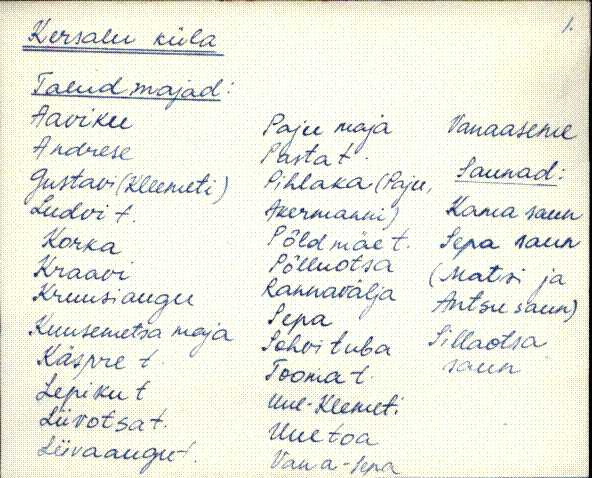 1.
Kersalu küla
Talud majad:
Aaviku
Andrese
Gustavi (Kleemeti)
Ludvi t.
Korka
Kraavi
Kruusiaugu
Kuusemetsa maja
Käspre t.
Lepiku t
Liivotsa t.
Liivaaugu t.
Paju maja
Pasta t.
Pihlaka (Paju,
Akermanni)
Põldmäe t.
Põlluotsa
Rannavälja
Sepa
Sohvi tuba
Tooma t.
Uue-Kleemeti
Uuetoa
Vana-Sepa
Vanaaseme
Saunad:
Kama saun
Sepa saun
(Matsi ja
Antsu saun)
Sillaotsa
saun